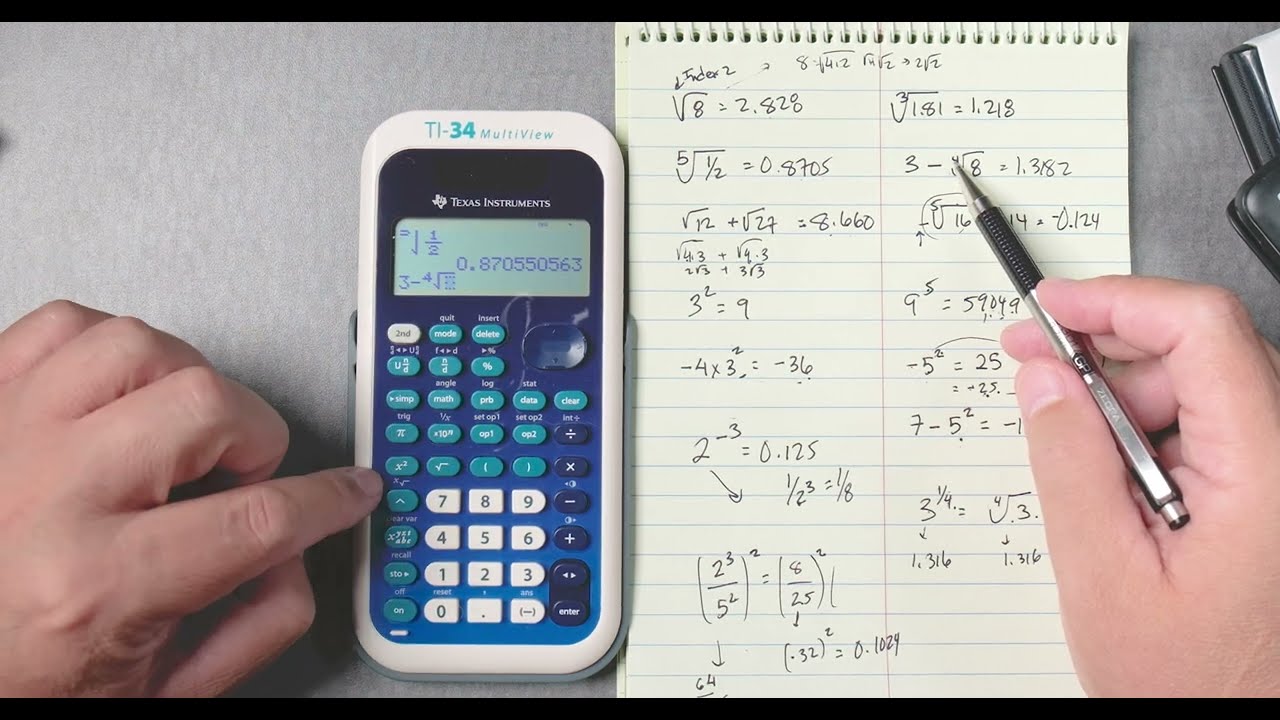 TI-34 MultiView
TEXAS INSTRUMENTS
DEG
ⁿ√ 1/2
0.870550563
3-⁴√
quit insert
2nd mode delete
f◄►d ►%
U n/d n/d %
angle log stat
►simp math prb data clear
trig 1/x set op1 set op2 int÷
π ×10ⁿ op1 op2 ÷
x² √ ( ) ×
ˣ√
^ 7 8 9 −
clear var
x yzt abc 4 5 6 +
recall
sto► 1 2 3 ◄►
off reset ans
on 0 . (−) enter
Index 2
8 = √4·2 √4√2 → 2√2
√8 = 2.828
⁵√1/2 = 0.8705
√12 + √27 = 8.660
√4·3 + √9·3
2√3 + 3√3
3² = 9
-4×3² = -36
2⁻³ = 0.125
1/2³ = 1/8
(2³/5²)² = (8/25)² (
(.32)² = 0.1024
64
³√1.81 = 1.218
3 − ⁴√8 = 1.3182
− ⁵√16 14 = -0.124
9⁵ = 59049
-5² = 25
= -25
7 - 5² = -1
3^1/4 = ⁴√3
1.316 1.316
ZEBRA